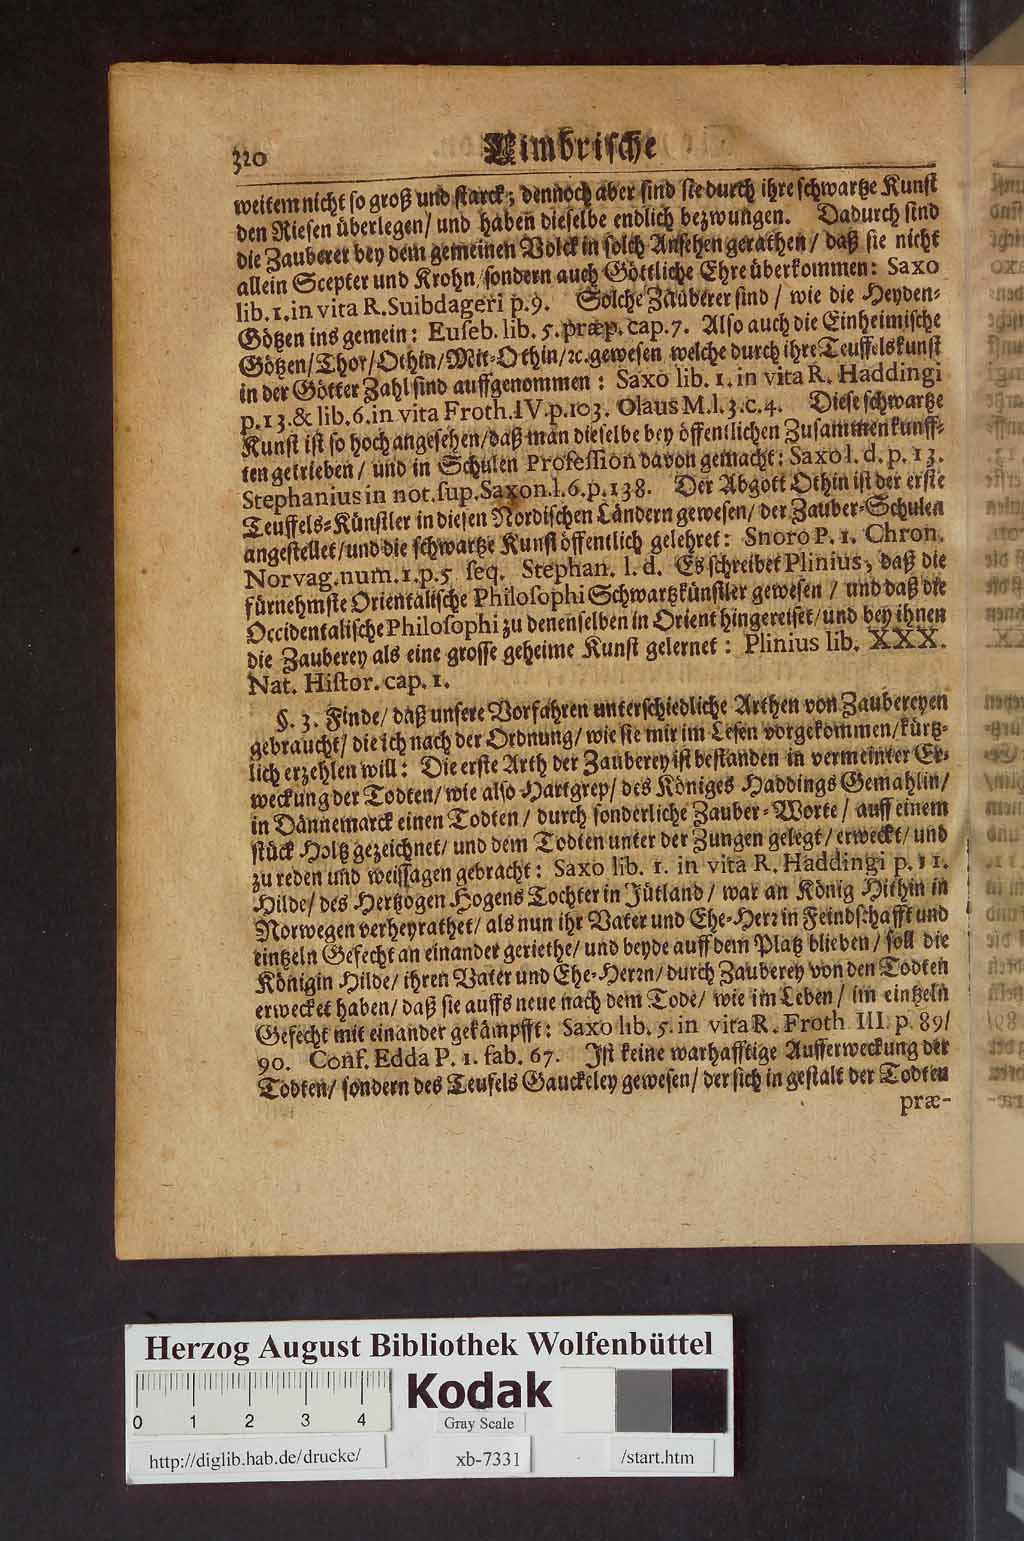 320
Cimbrische
weitem nicht so groß und starck; dennoch aber sind sie durch ihre schwartze Kunst
den Riesen überlegen/ und haben dieselbe endlich bezwungen. Dadurch sind
die Zauberer bey dem gemeinen Volck in solch Ansehen gerathen/ daß sie nicht
allein Scepter und Krohn/ sondern auch Göttliche Ehre überkommen: Saxo
lib. 1. in vita R. Suibdageri p. 9. Solche Zauberer sind/ wie die Heyden-
Götzen ins gemein: Euseb. lib. 5. præp. cap. 7. Also auch die Einheimische
Götzen/ Thor/ Othin/ Mit-Othin/ ꝛc. gewesen welche durch ihre Teuffelskunst
in der Götter Zahl sind auffgenommen: Saxo lib. 1. in vita R. Haddingi
p. 13. & lib. 6. in vita Froth. IV. p. 103. Olaus M. l. 3. c. 4. Diese schwartze
Kunst ist so hoch angesehen/ daß man dieselbe bey öffentlichen Zusammenkunff-
ten getrieben/ und in Schulen Profession davon gemacht: Saxo l. d. p. 13.
Stephanius in not. sup. Saxon. l. 6. p. 138. Der Abgott Othin ist der erste
Teuffels-Künstler in diesen Nordischen Ländern gewesen/ der Zauber-Schulen
angestellet/ und die schwartze Kunst öffentlich gelehret: Snoro P. 1. Chron.
Norvag. num. 1. p. 5 seq. Stephan. l. d. Es schreibet Plinius, daß die
fürnehmste Orientalische Philosophi Schwartzkünstler gewesen/ und daß die
Occidentalische Philosophi zu denenselben in Orient hingereiset/ und bey ihnen
die Zauberey als eine grosse geheime Kunst gelernet: Plinius lib. XXX.
Nat. Histor. cap. 1.
§. 3. Finde/ daß unsere Vorfahren unterschiedliche Arthen von Zaubereyen
gebraucht/ die ich nach der Ordnung/ wie sie mir im Lesen vorgekommen/ kürtz-
lich erzehlen will: Die erste Arth der Zauberey ist bestanden in vermeinter Er-
weckung der Todten/ wie also Hartgrep/ des Königes Haddings Gemahlin/
in Dännemarck einen Todten/ durch sonderliche Zauber-Worte/ auff einem
stück Holtz gezeichnet/ und dem Todten unter der Zungen gelegt/ erweckt/ und
zu reden und weissagen gebracht: Saxo lib. 1. in vita R. Haddingi p. 11.
Hilde/ des Hertzogen Hogens Tochter in Jütland/ war an König Hithin in
Norwegen verheyrathet/ als nun ihr Vater und Ehe-Herr in Feindschafft und
eintzeln Gefecht an einander geriethe/ und beyde auff dem Platz blieben/ soll die
Königin Hilde/ ihren Vater und Ehe-Herrn/ durch Zauberey von den Todten
erwecket haben/ daß sie auffs neue nach dem Tode/ wie im Leben/ im eintzeln
Gefecht mit einander gekämpfft: Saxo lib. 5. in vita R. Froth III. p. 89/
90. Conf. Edda P. 1. fab. 67. Ist keine warhafftige Aufferweckung der
Todten/ sondern des Teufels Gauckeley gewesen/ der sich in gestalt der Todten
præ-
Herzog August Bibliothek Wolfenbüttel
0 1 2 3 4
Kodak
Gray Scale
http://diglib.hab.de/drucke/ xb-7331 /start.htm